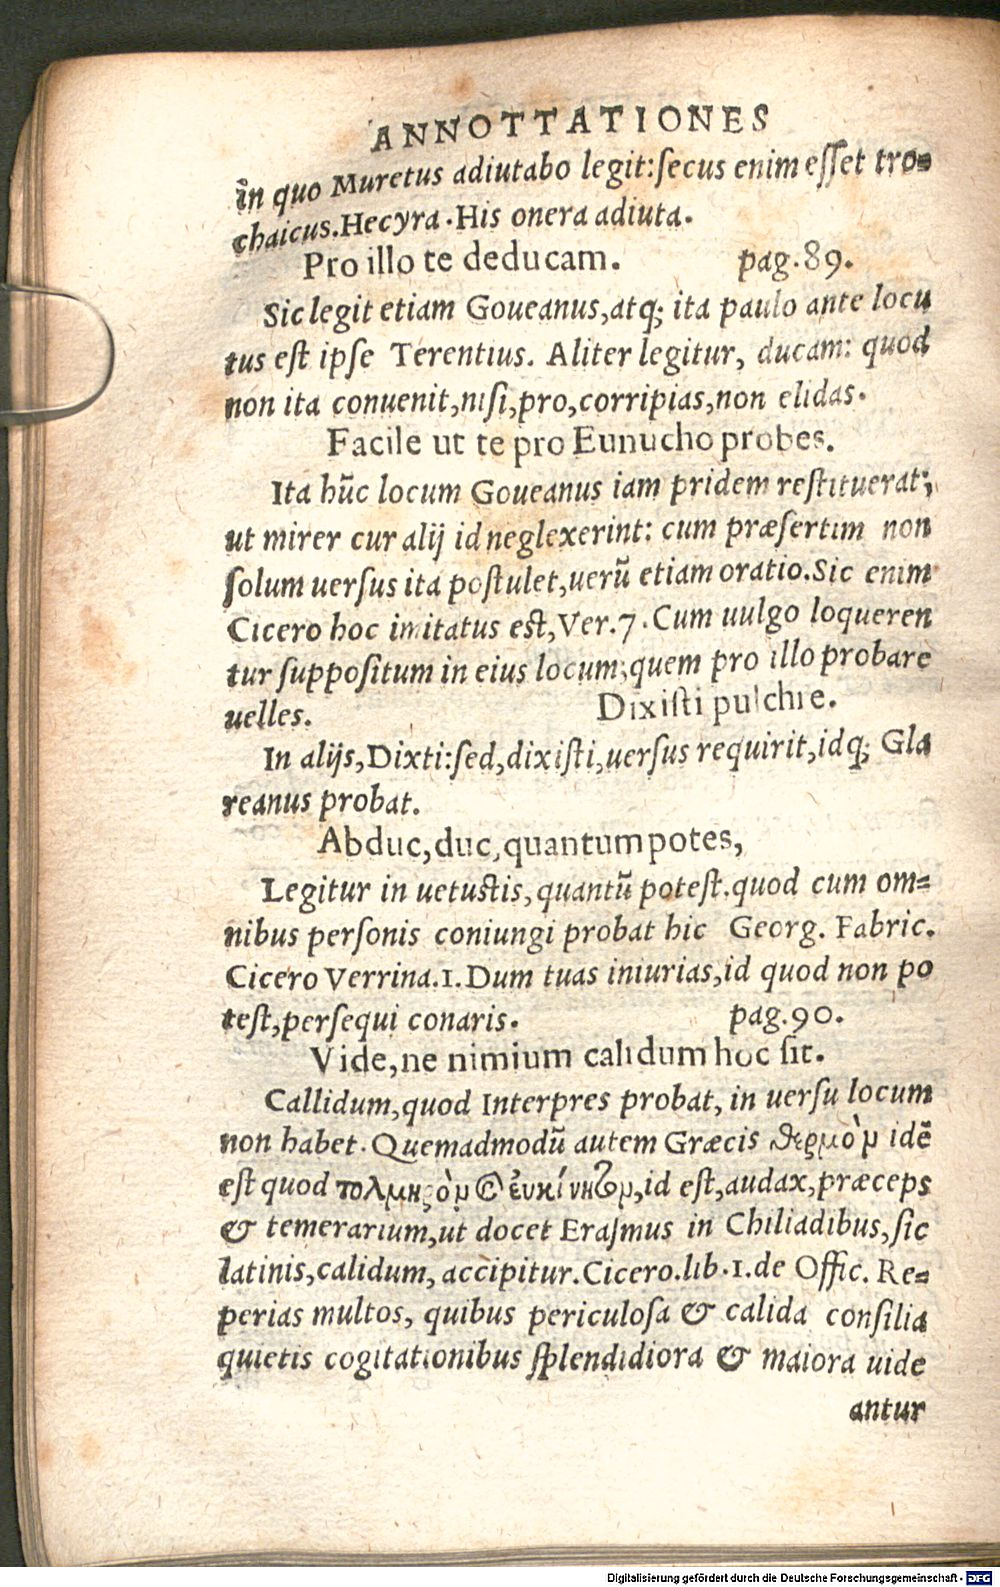 ANNOTTATIONES
in quo Muretus adiutabo legit:ſecus enim eſſet tro=
chaicus.Hecyra.His onera adiuta.
Pro illo te deducam. pag.89.
Sic legit etiam Goueanus,atq; ita paulo ante locu
tus eſt ipſe Terentius. Aliter legitur, ducam: quod
non ita conuenit,niſi,pro,corripias,non elidas.
Facile ut te pro Eunucho probes.
Ita hūc locum Goueanus iam pridem reſtituerat;
ut mirer cur alij id neglexerint: cum præſertim non
ſolum uerſus ita poſtulet,uerū etiam oratio.Sic enim
Cicero hoc imitatus eſt,Ver.7.Cum uulgo loqueren
tur ſuppoſitum in eius locum,quem pro illo probare
uelles. Dixiſti pulchre.
In alijs,Dixti:ſed,dixiſti,uerſus requirit,idq; Gla
reanus probat.
Abduc,duc,quantum potes,
Legitur in uetuſtis,quantū poteſt.quod cum om=
nibus perſonis coniungi probat hic Georg. Fabric.
Cicero Verrina.1.Dum tuas iniurias,id quod non po
teſt,perſequi conaris. pag.90.
Vide,ne nimium calidum hoc ſit.
Callidum,quod Interpres probat, in uerſu locum
non habet.Quemadmodū autem Græcis θερμὸν idē
eſt quod τολμηρὸν & εὐκίνητον,id eſt,audax,præceps
& temerarium,ut docet Eraſmus in Chiliadibus,ſic
latinis,calidum, accipitur.Cicero.lib.1.de Offic. Re=
perias multos, quibus periculoſa & calida conſilia
quietis cogitationibus ſplendidiora & maiora uide
antur
Digitalisierung gefördert durch die Deutsche Forschungsgemeinschaft - DFG